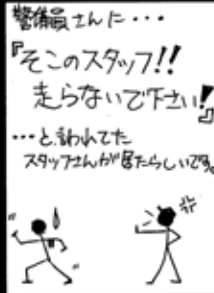 警備員さんに・・・
『そこのスタッフ!!
走らないで下さい!』
・・・と、言われてた
スタッフさんが居たらしいです。